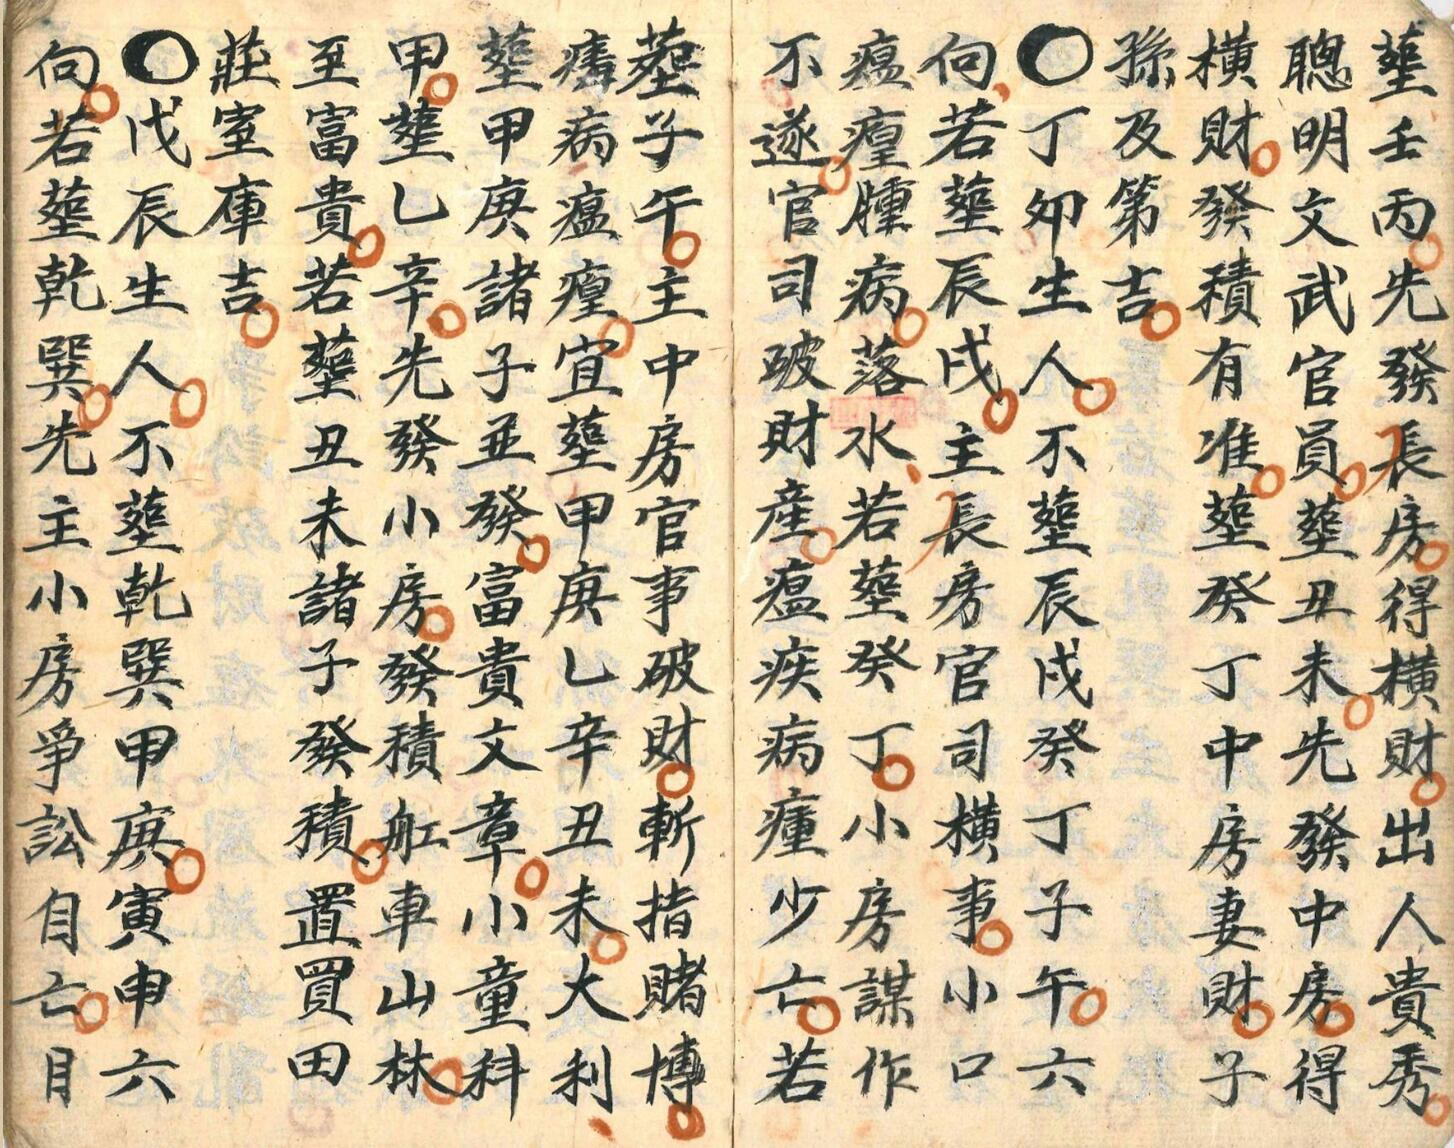 葬壬丙先發長房得橫財出人貴秀
聰明文武官員葬丑未先發中房得
橫財發積有准葬癸丁中房妻財子
孫及第吉
〇丁夘生人不葬辰戌癸丁子午六
向若葬辰戌主長房官司橫事小口
瘟㾮腫病落水若葬癸丁小房謀作
不遂官司破財產瘟疾病瘇少亡若
葬子午主中房官事破財斬指賭博
病瘟㾮宜葬甲庚乙辛丑未大利
葬甲庚諸子並發富貴文章小童科
甲葬乙辛先發小房發積舡車山林
至富貴若葬丑未諸子發積置買田
莊室庫吉
〇戊辰生人不葬乾巽甲庚寅申六
向若葬乾巽先主小房爭訟自亡目